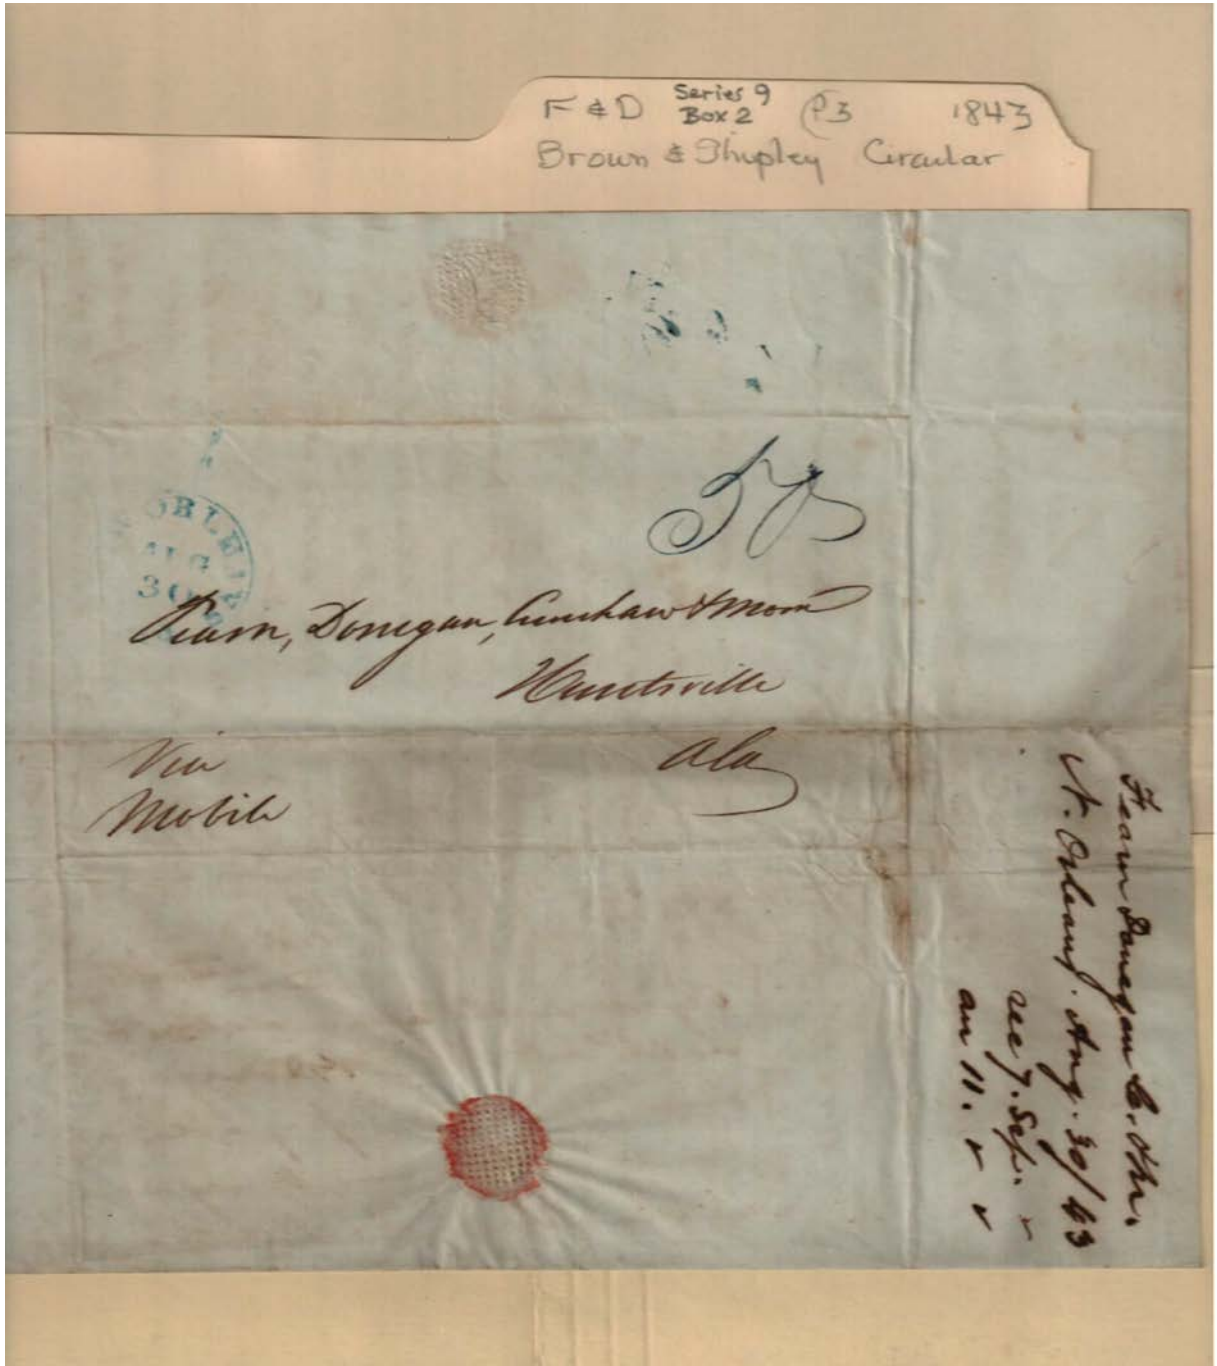 F & D Series 9 Box 2 P3 1843
Brown & Shipley Circular
ORLEA
AUG
30
Fearn, Donegan,
Huntsville
Via Ala
Mobile
Fearn Donegan C.
N. Orleans. Aug. 30/43
rec 7. Sep.
an 11.